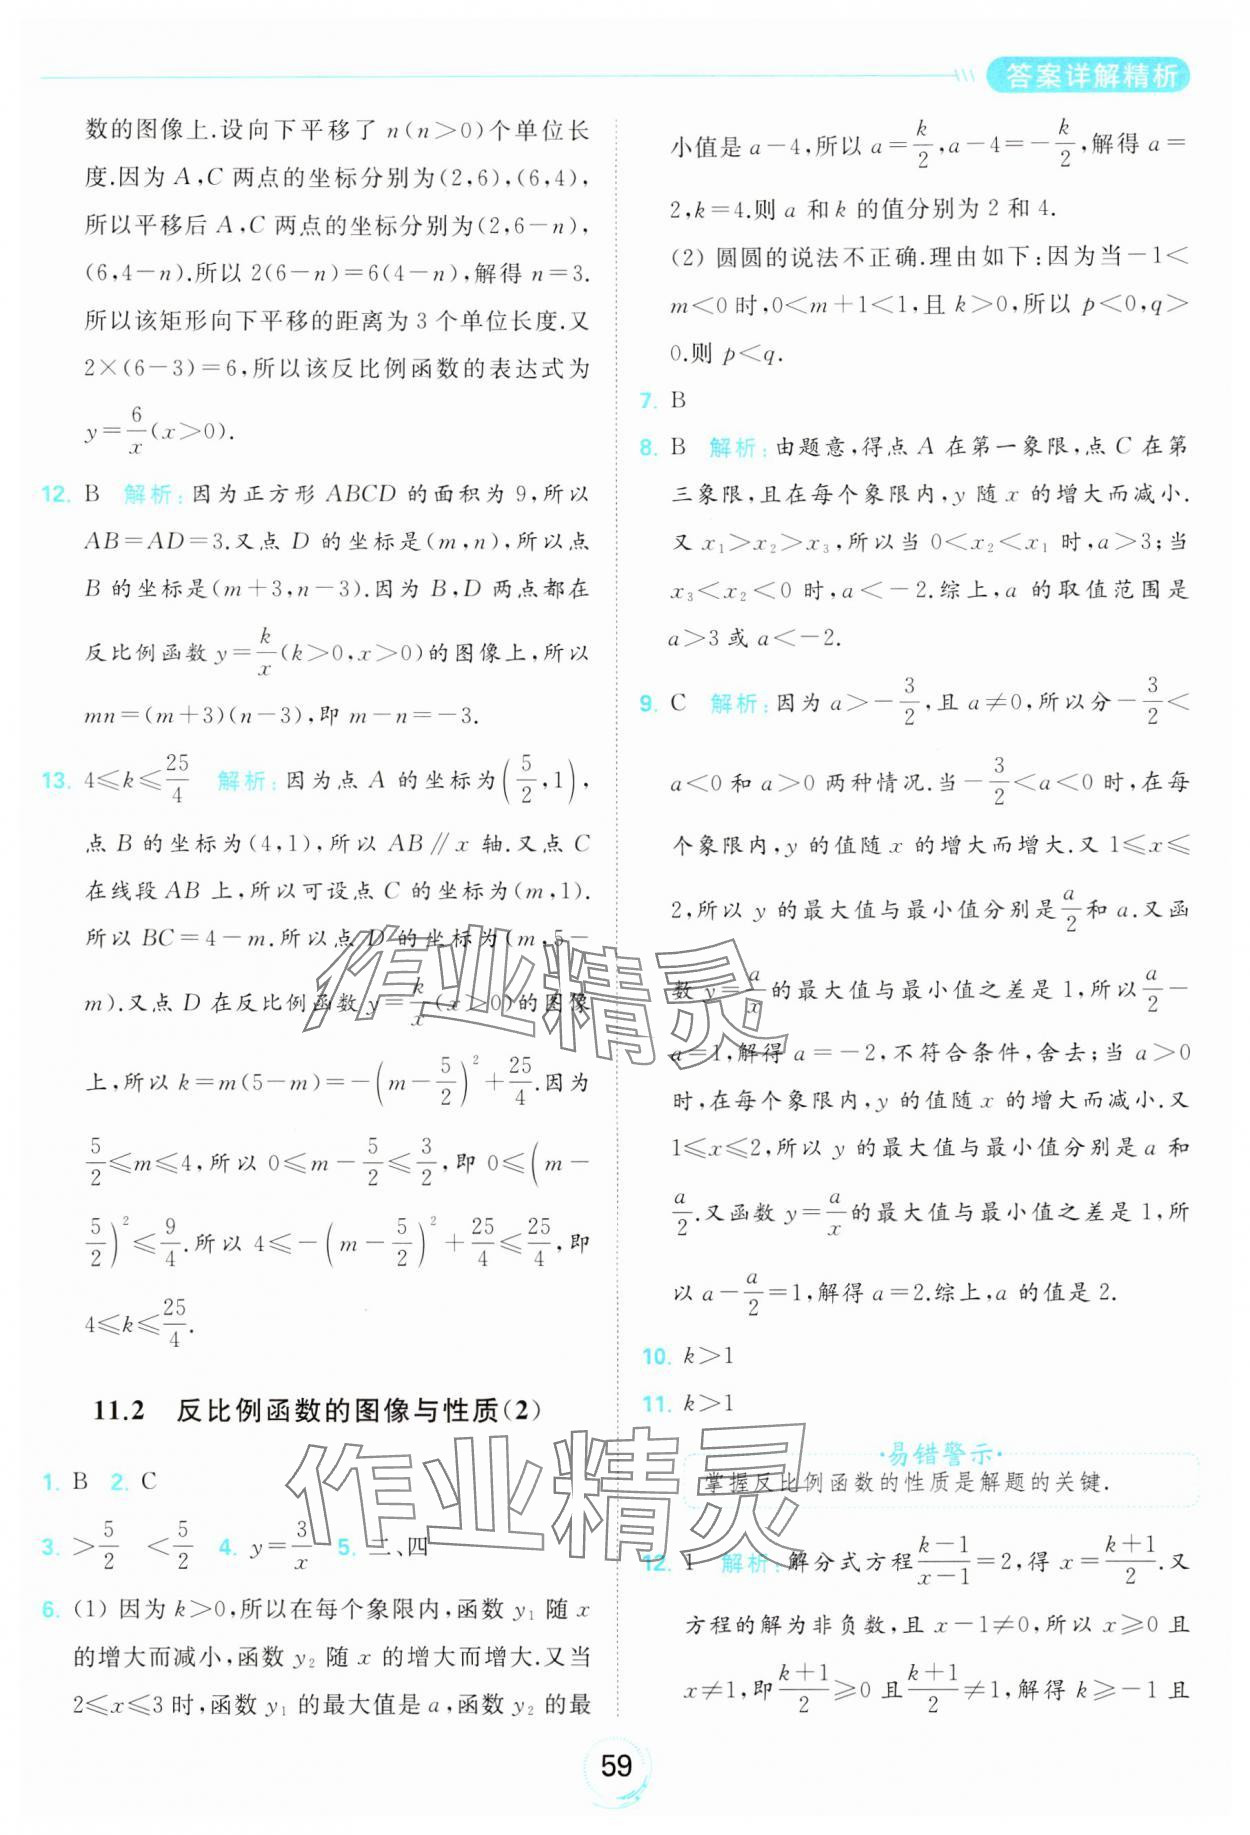 答案详解精析
数的图像上.设向下平移了 n(n>0)个单位长
度.因为 A,C 两点的坐标分别为(2,6),(6,4),
所以平移后 A,C 两点的坐标分别为(2,6-n),
(6,4-n).所以 2(6-n)=6(4-n),解得 n=3.
所以该矩形向下平移的距离为 3 个单位长度.又
2×(6-3)=6,所以该反比例函数的表达式为
y=6/x(x>0).
12. B 解析:因为正方形 ABCD 的面积为 9,所以
AB=AD=3.又点 D 的坐标是(m,n),所以点
B 的坐标是(m+3,n-3).因为 B,D 两点都在
反比例函数 y=k/x(k>0,x>0)的图像上,所以
mn=(m+3)(n-3),即 m-n=-3.
13. 4≤k≤25/4 解析:因为点 A 的坐标为(5/2,1),
点 B 的坐标为(4,1),所以 AB∥x 轴.又点 C
在线段 AB 上,所以可设点 C 的坐标为(m,1).
所以 BC=4-m.所以点 D 的坐标为(m,5-
m).又点 D 在反比例函数 y=k/x(x>0)的图像
上,所以 k=m(5-m)=-(m-5/2)²+25/4.因为
5/2≤m≤4,所以 0≤m-5/2≤3/2,即 0≤(m-
5/2)²≤9/4.所以 4≤-(m-5/2)²+25/4≤25/4,即
4≤k≤25/4.
11.2 反比例函数的图像与性质(2)
1. B 2. C
3. >5/2 <5/2 4. y=3/x 5. 二、四
6. (1) 因为 k>0,所以在每个象限内,函数 y₁ 随 x
的增大而减小,函数 y₂ 随 x 的增大而增大.又当
2≤x≤3 时,函数 y₁ 的最大值是 a,函数 y₂ 的最
小值是 a-4,所以 a=k/2,a-4=-k/2,解得 a=
2,k=4.则 a 和 k 的值分别为 2 和 4.
(2) 圆圆的说法不正确.理由如下:因为当-1<
m<0 时,0<m+1<1,且 k>0,所以 p<0,q>
0.则 p<q.
7. B
8. B 解析:由题意,得点 A 在第一象限,点 C 在第
三象限,且在每个象限内,y 随 x 的增大而减小.
又 x₁>x₂>x₃,所以当 0<x₂<x₁ 时,a>3;当
x₃<x₂<0 时,a<-2.综上,a 的取值范围是
a>3 或 a<-2.
9. C 解析:因为 a>-3/2,且 a≠0,所以分-3/2<
a<0 和 a>0 两种情况.当-3/2<a<0 时,在每
个象限内,y 的值随 x 的增大而增大.又 1≤x≤
2,所以 y 的最大值与最小值分别是a/2和 a.又函
数 y=a/x的最大值与最小值之差是 1,所以a/2-
a=1,解得 a=-2,不符合条件,舍去;当 a>0
时,在每个象限内,y 的值随 x 的增大而减小.又
1≤x≤2,所以 y 的最大值与最小值分别是 a 和
a/2.又函数 y=a/x的最大值与最小值之差是 1,所
以 a-a/2=1,解得 a=2.综上,a 的值是 2.
10. k>1
11. k>1
·易错警示·
掌握反比例函数的性质是解题的关键.
12. 1 解析:解分式方程(k-1)/(x-1)=2,得 x=(k+1)/2.又
方程的解为非负数,且 x-1≠0,所以 x≥0 且
x≠1,即(k+1)/2≥0 且(k+1)/2≠1,解得 k≥-1 且
59
作业精灵
作业精灵